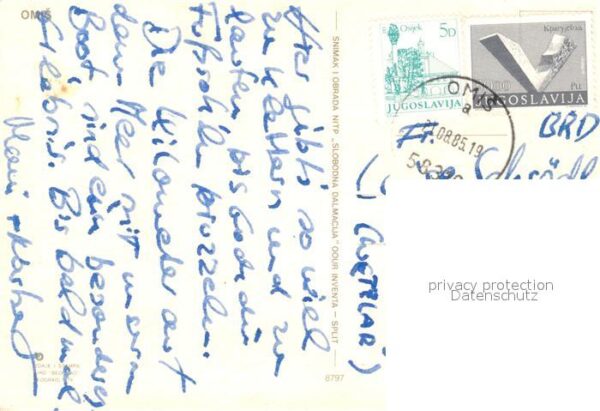 OMIŠ
Hier gibt's so viel
zu klettern und zu
laufen bis daß die
Fußsohlen brutzeln.
Die Kilometer auf
dem Meer mit unserm
Boot sind ein besonderes
Erlebnis. Bis bald mal
SNIMAK I OBRADA NITP „SLOBODNA DALMACIJA" OOUR INVENTA — SPLIT
8797
Osijek
50
JUGOSLAVIJA
JUGOSLAVIJA
OMIŠ
a
08.85.19
BRD
Fr.
(WETZLAR)
privacy protection
Datenschutz